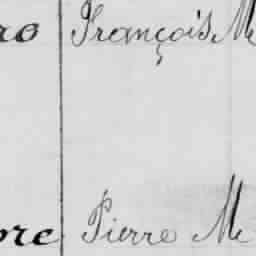 ro François M
bre Pierre M